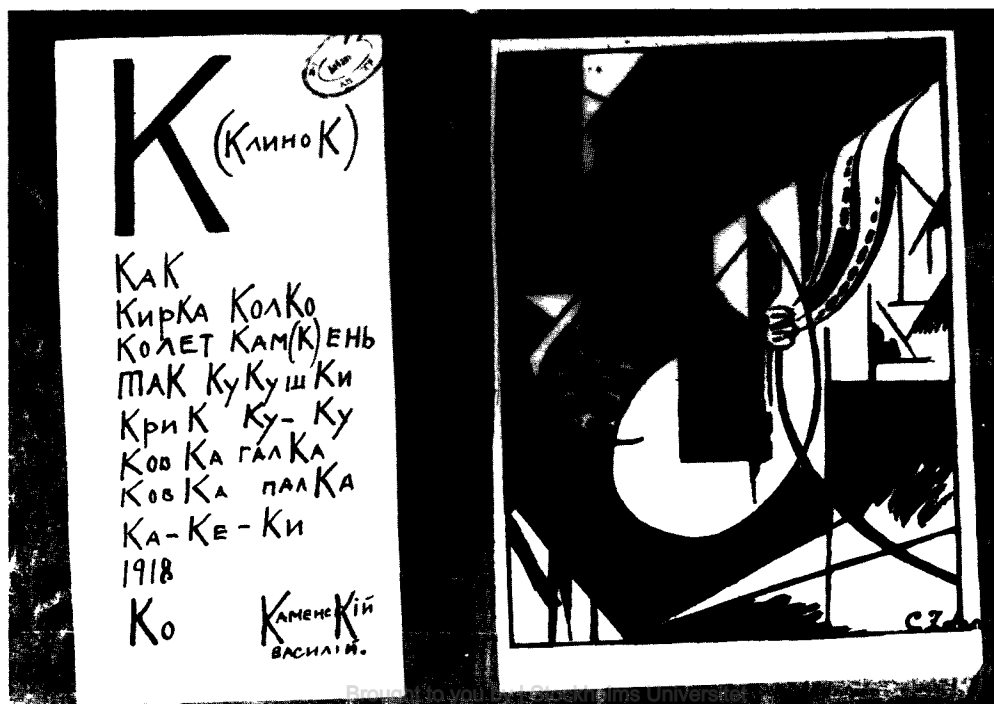 К
(КлиноК)
КаК
КирКа КолКо
КОЛЕТ КАМ(К)ЕНЬ
ТАК КуКушКи
КриК Ку- Ку
КовКа галКа
КовКа палКа
Ка-Ке-Ки
1918
Ко КаменсКій
ВАСИЛІЙ.
Brought to you by | Stockholms Universitet